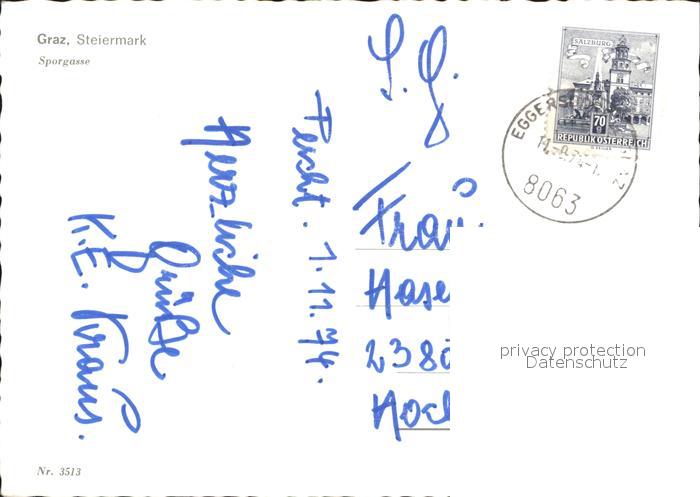 Graz, Steiermark
Sporgasse
SALZBURG
70
REPUBLIK ÖSTERREICH
8063
1.11.74.
Herzliche
Grüße
K.E. Kraus.
Frau
Hase
2380
privacy protection
Datenschutz
Nr. 3513